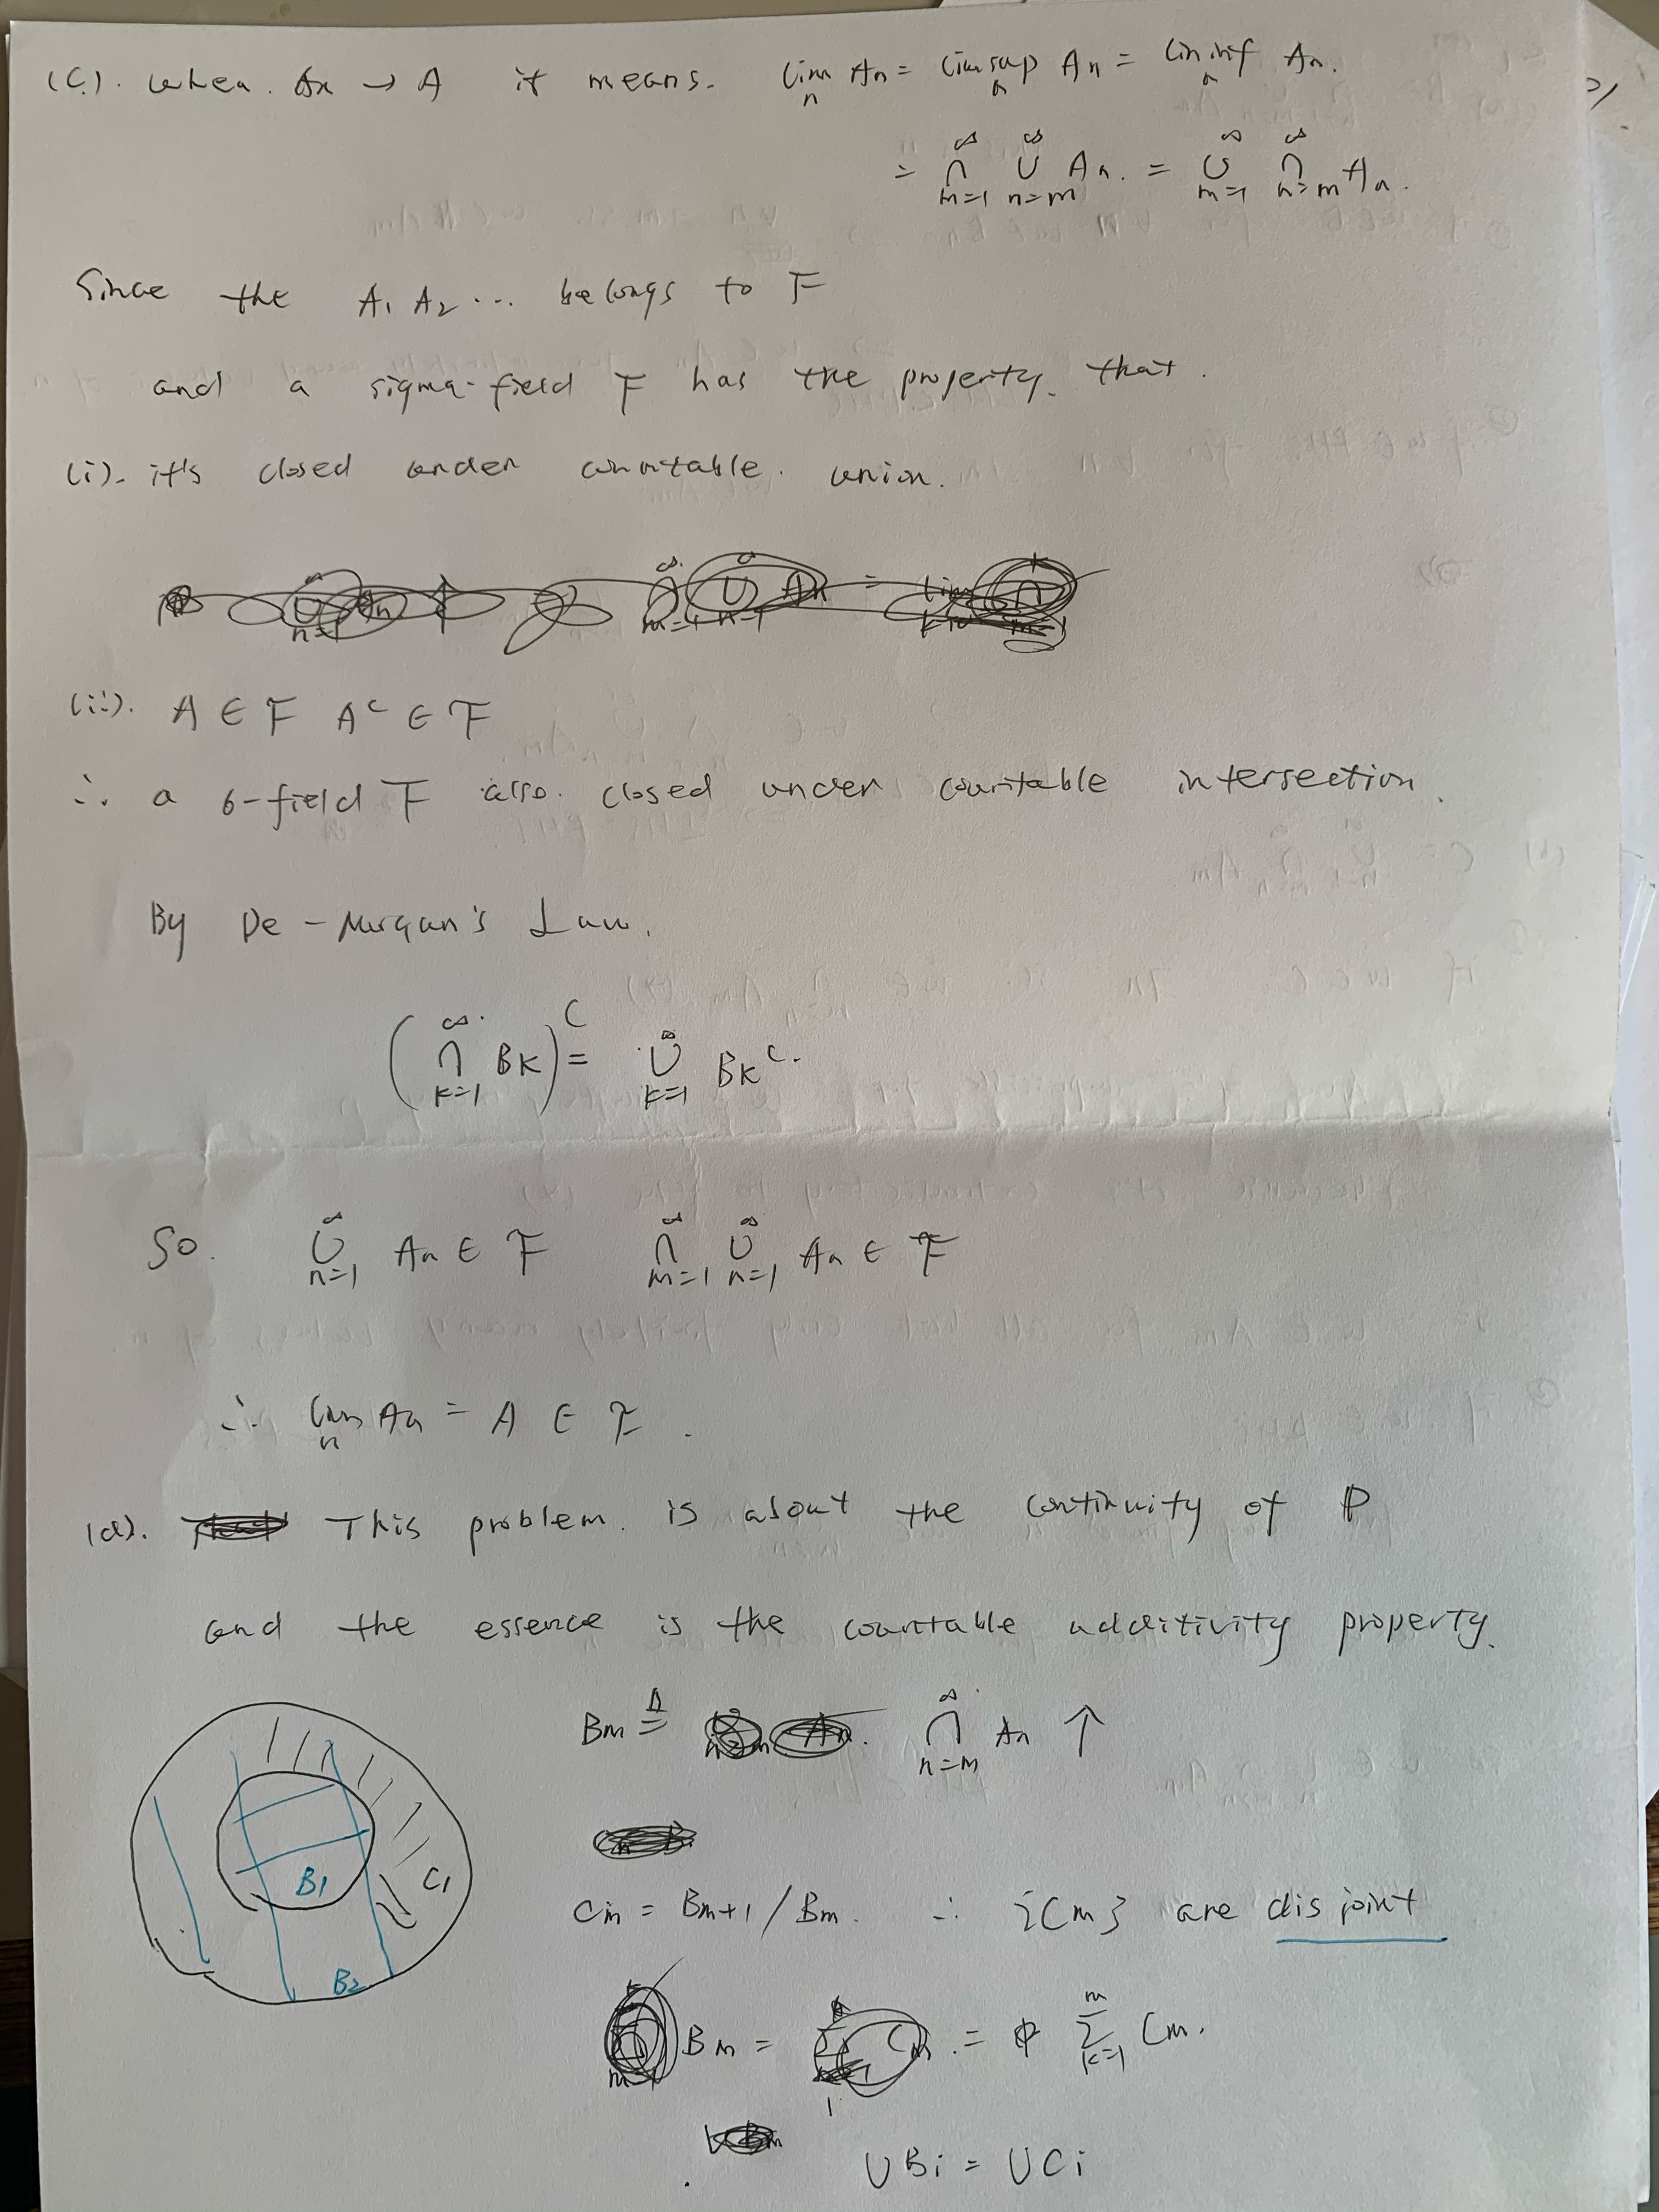 (C). when. An → A it means. lim_n An = limsup_n An = liminf_n An.
= ∩_{m=1}^∞ ∪_{n=m}^∞ An. = ∪_{m=1}^∞ ∩_{n=m}^∞ An.
Since the A1 A2 ... belongs to F
and a sigma-field F has the property. that.
(i). it's closed under countable. union.
(ii). A ∈ F A^c ∈ F
∴ a σ-field F also. closed under countable intersection.
By De-Morgan's Law.
(∩_{k=1}^∞ Bk)^C = ∪_{k=1}^∞ Bk^c.
So. ∪_{n=1}^∞ An ∈ F ∩_{m=1}^∞ ∪_{n=1}^∞ An ∈ F
∴ lim_n An = A ∈ F.
(d). This problem. is about the continuity of P
and the essence is the countable additivity property.
Bm ≜ ∩_{n=m}^∞ An ↑
B1 C1
B2
Cm = Bm+1 / Bm. ∴ {Cm} are disjoint
Bm = = Σ_{k=1}^m Cm.
∪Bi = ∪Ci